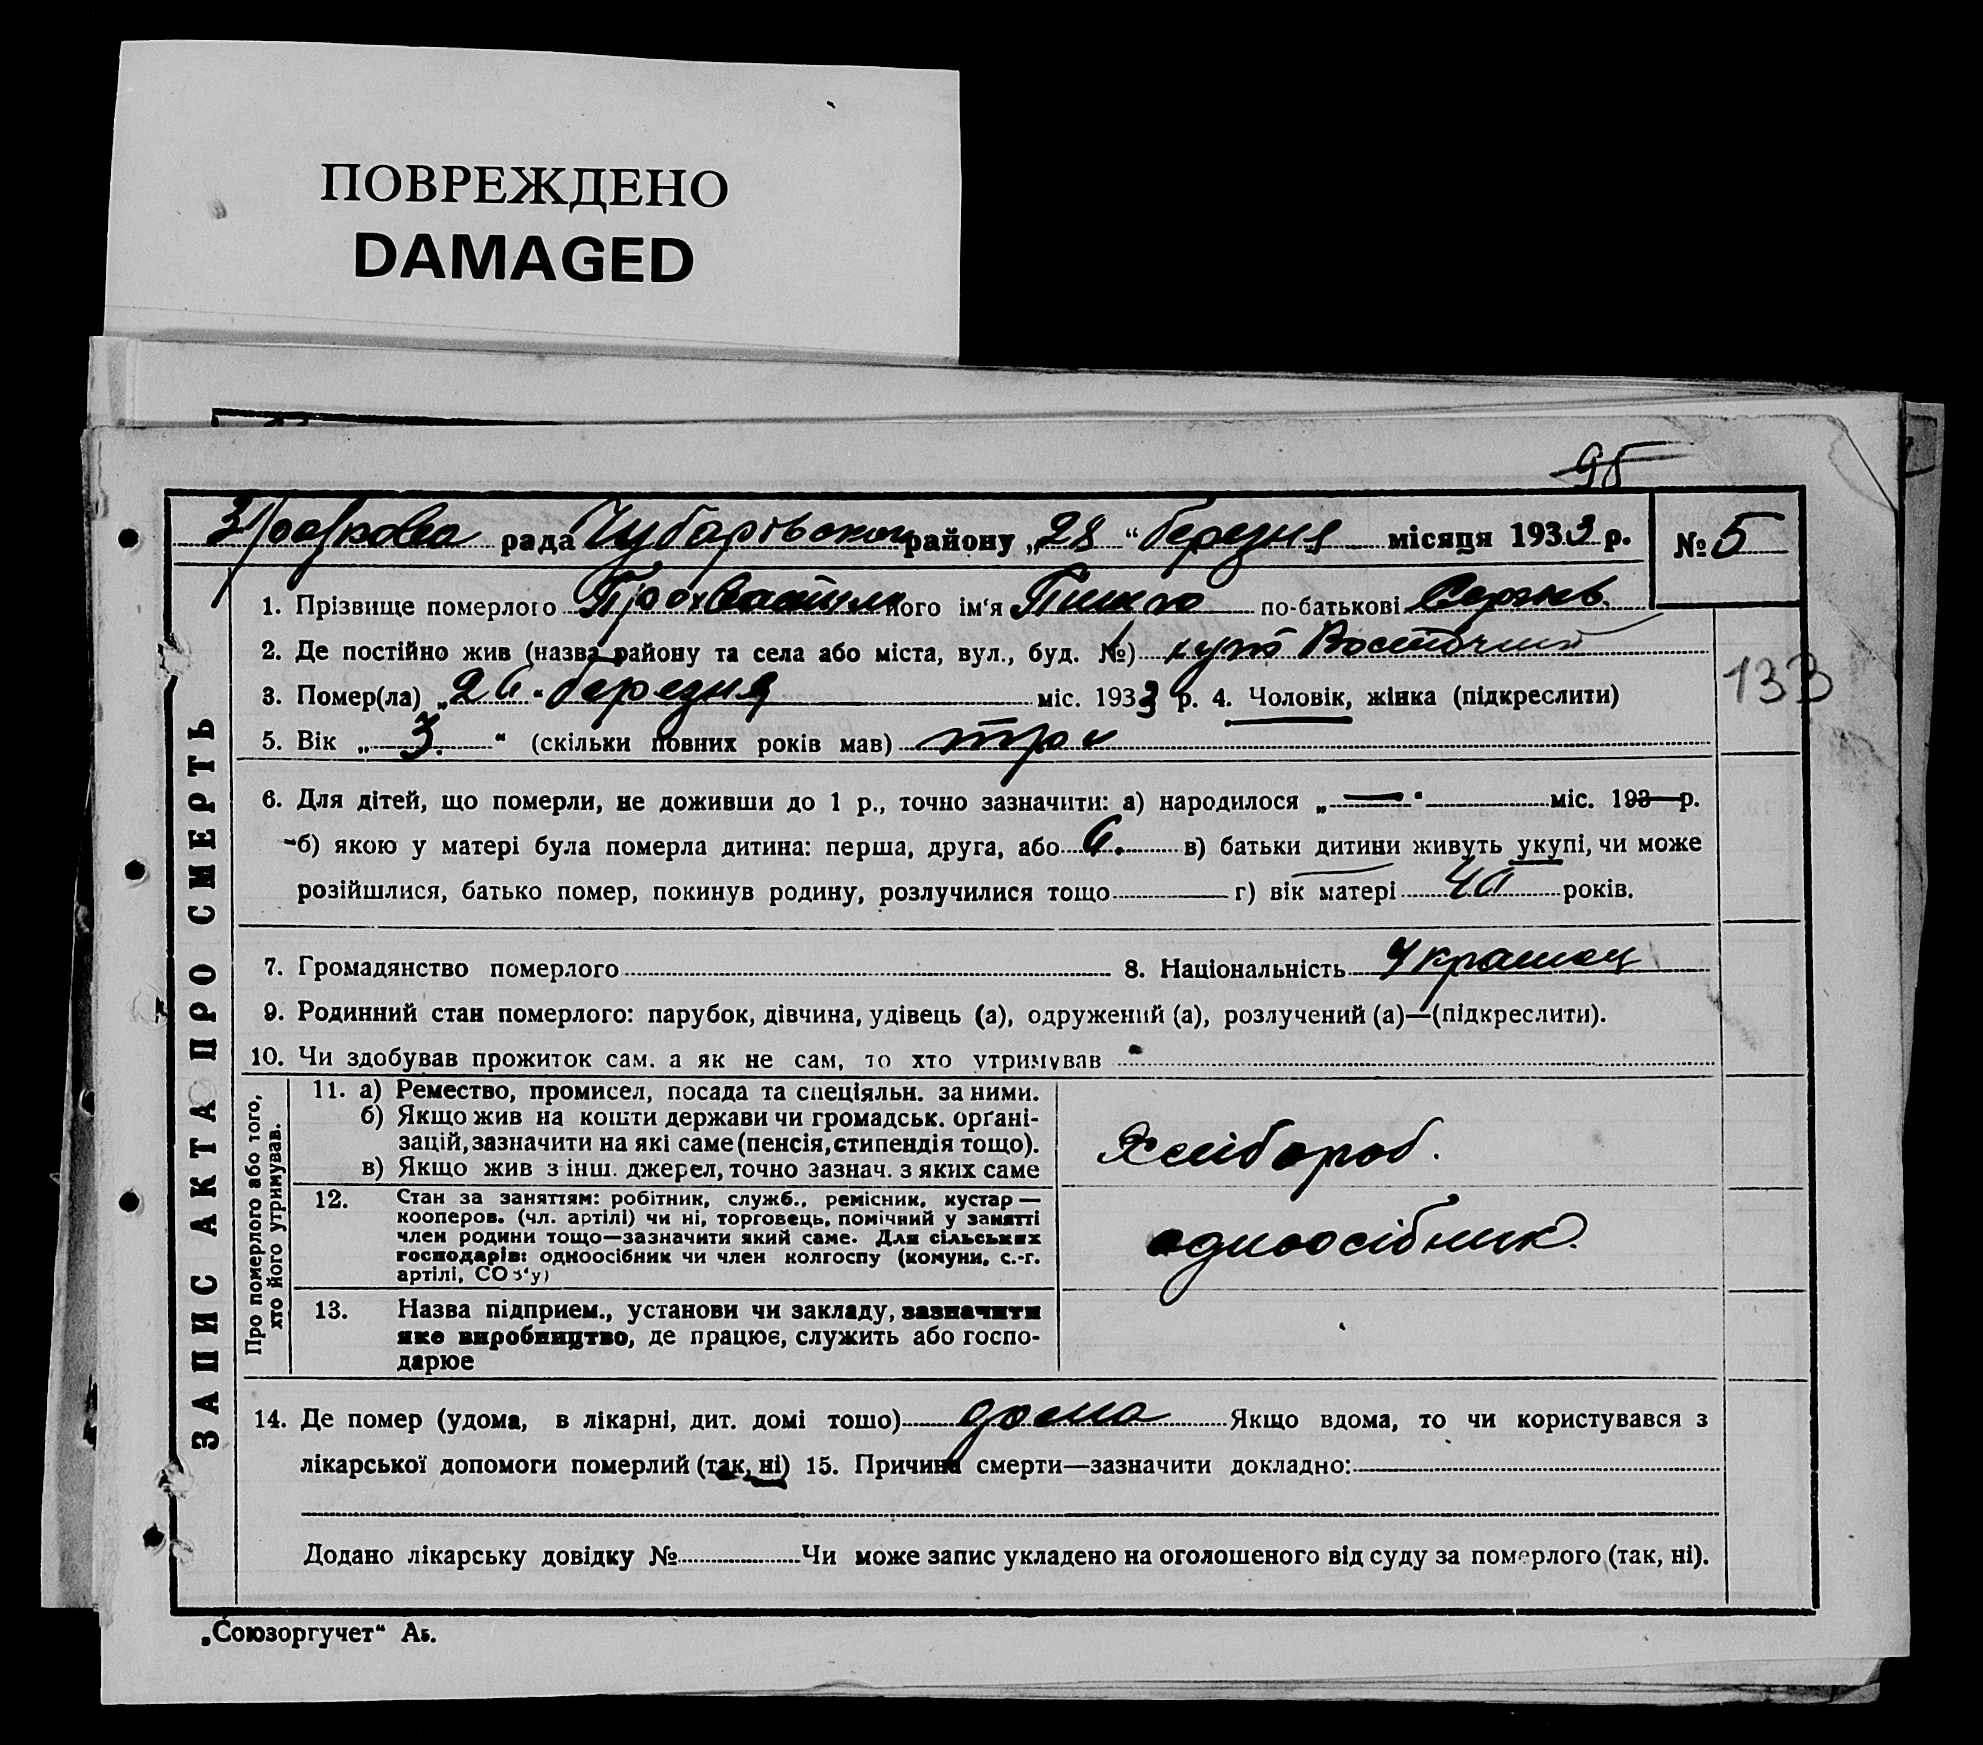 ПОВРЕЖДЕНО
DAMAGED
95
рада Чубарівського району „28“ березня місяця 1933 р. № 5
1. Прізвище померлого його ім'я по-батькові
2. Де постійно жив (назва району та села або міста, вул., буд. №) Восточний
133
3. Помер(ла) „26“ березня міс. 1933 р. 4. Чоловік, жінка (підкреслити)
5. Вік „3.“ (скільки повних років мав) три
6. Для дітей, що померли, не доживши до 1 р., точно зазначити: а) народилося „—“ міс. 193—р.
б) якою у матері була померла дитина: перша, друга, або 6. в) батьки дитини живуть укупі, чи може
розійшлися, батько помер, покинув родину, розлучилися тощо г) вік матері 40 років.
7. Громадянство померлого 8. Національність Українец
9. Родинний стан померлого: парубок, дівчина, удівець (а), одружений (а), розлучений (а)—(підкреслити).
10. Чи здобував прожиток сам. а як не сам, то хто утримував
ЗАПИС АКТА ПРО СМЕРТЬ
Про померлого або того,
хто його утримував.
11. а) Ремество, промисел, посада та спеціяльн. за ними.
б) Якщо жив на кошти держави чи громадськ. орґані-
зацій, зазначити на які саме (пенсія, стипендія тощо).
в) Якщо жив з інш. джерел, точно зазнач. з яких саме
Хлібороб.
12. Стан за заняттям: робітник, служб., ремісник, кустар —
кооперов. (чл. артілі) чи ні, торговець, помічний у занятті
член родини тощо—зазначити який саме. Для сільських
господарів: одноосібник чи член колгоспу (комуни, с.-г.
артілі, СОЗ'у)
одноосібник.
13. Назва підприєм., установи чи закладу, зазначити
яке виробництво, де працює, служить або госпо-
дарює
14. Де помер (удома, в лікарні, дит. домі тощо) дома Якщо вдома, то чи користувався з
лікарської допомоги померлий (так, ні) 15. Причина смерти—зазначити докладно:
Додано лікарську довідку № Чи може запис укладено на оголошеного від суду за померлого (так, ні).
„Союзоргучет“ А5.